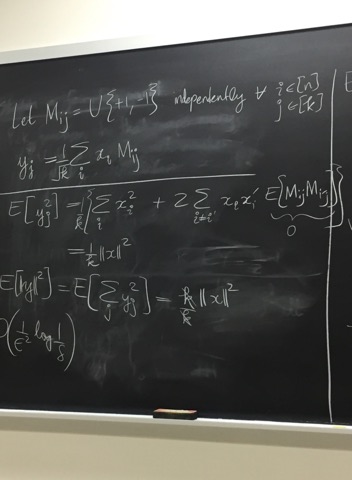 Let M_ij = U{+1, -1} indepentently ∀ i∈[n] j∈[k]
y_j = 1/√k Σ_i x_i M_ij
E[y_j^2] = 1/k {Σ_i x_i^2 + 2 Σ_{i≠i'} x_i x_i' E{M_ij M_i'j}}
0
= 1/k ||x||^2
E[||y||^2] = E[Σ_j y_j^2] = k/k ||x||^2
(1/ε^2 log 1/δ)